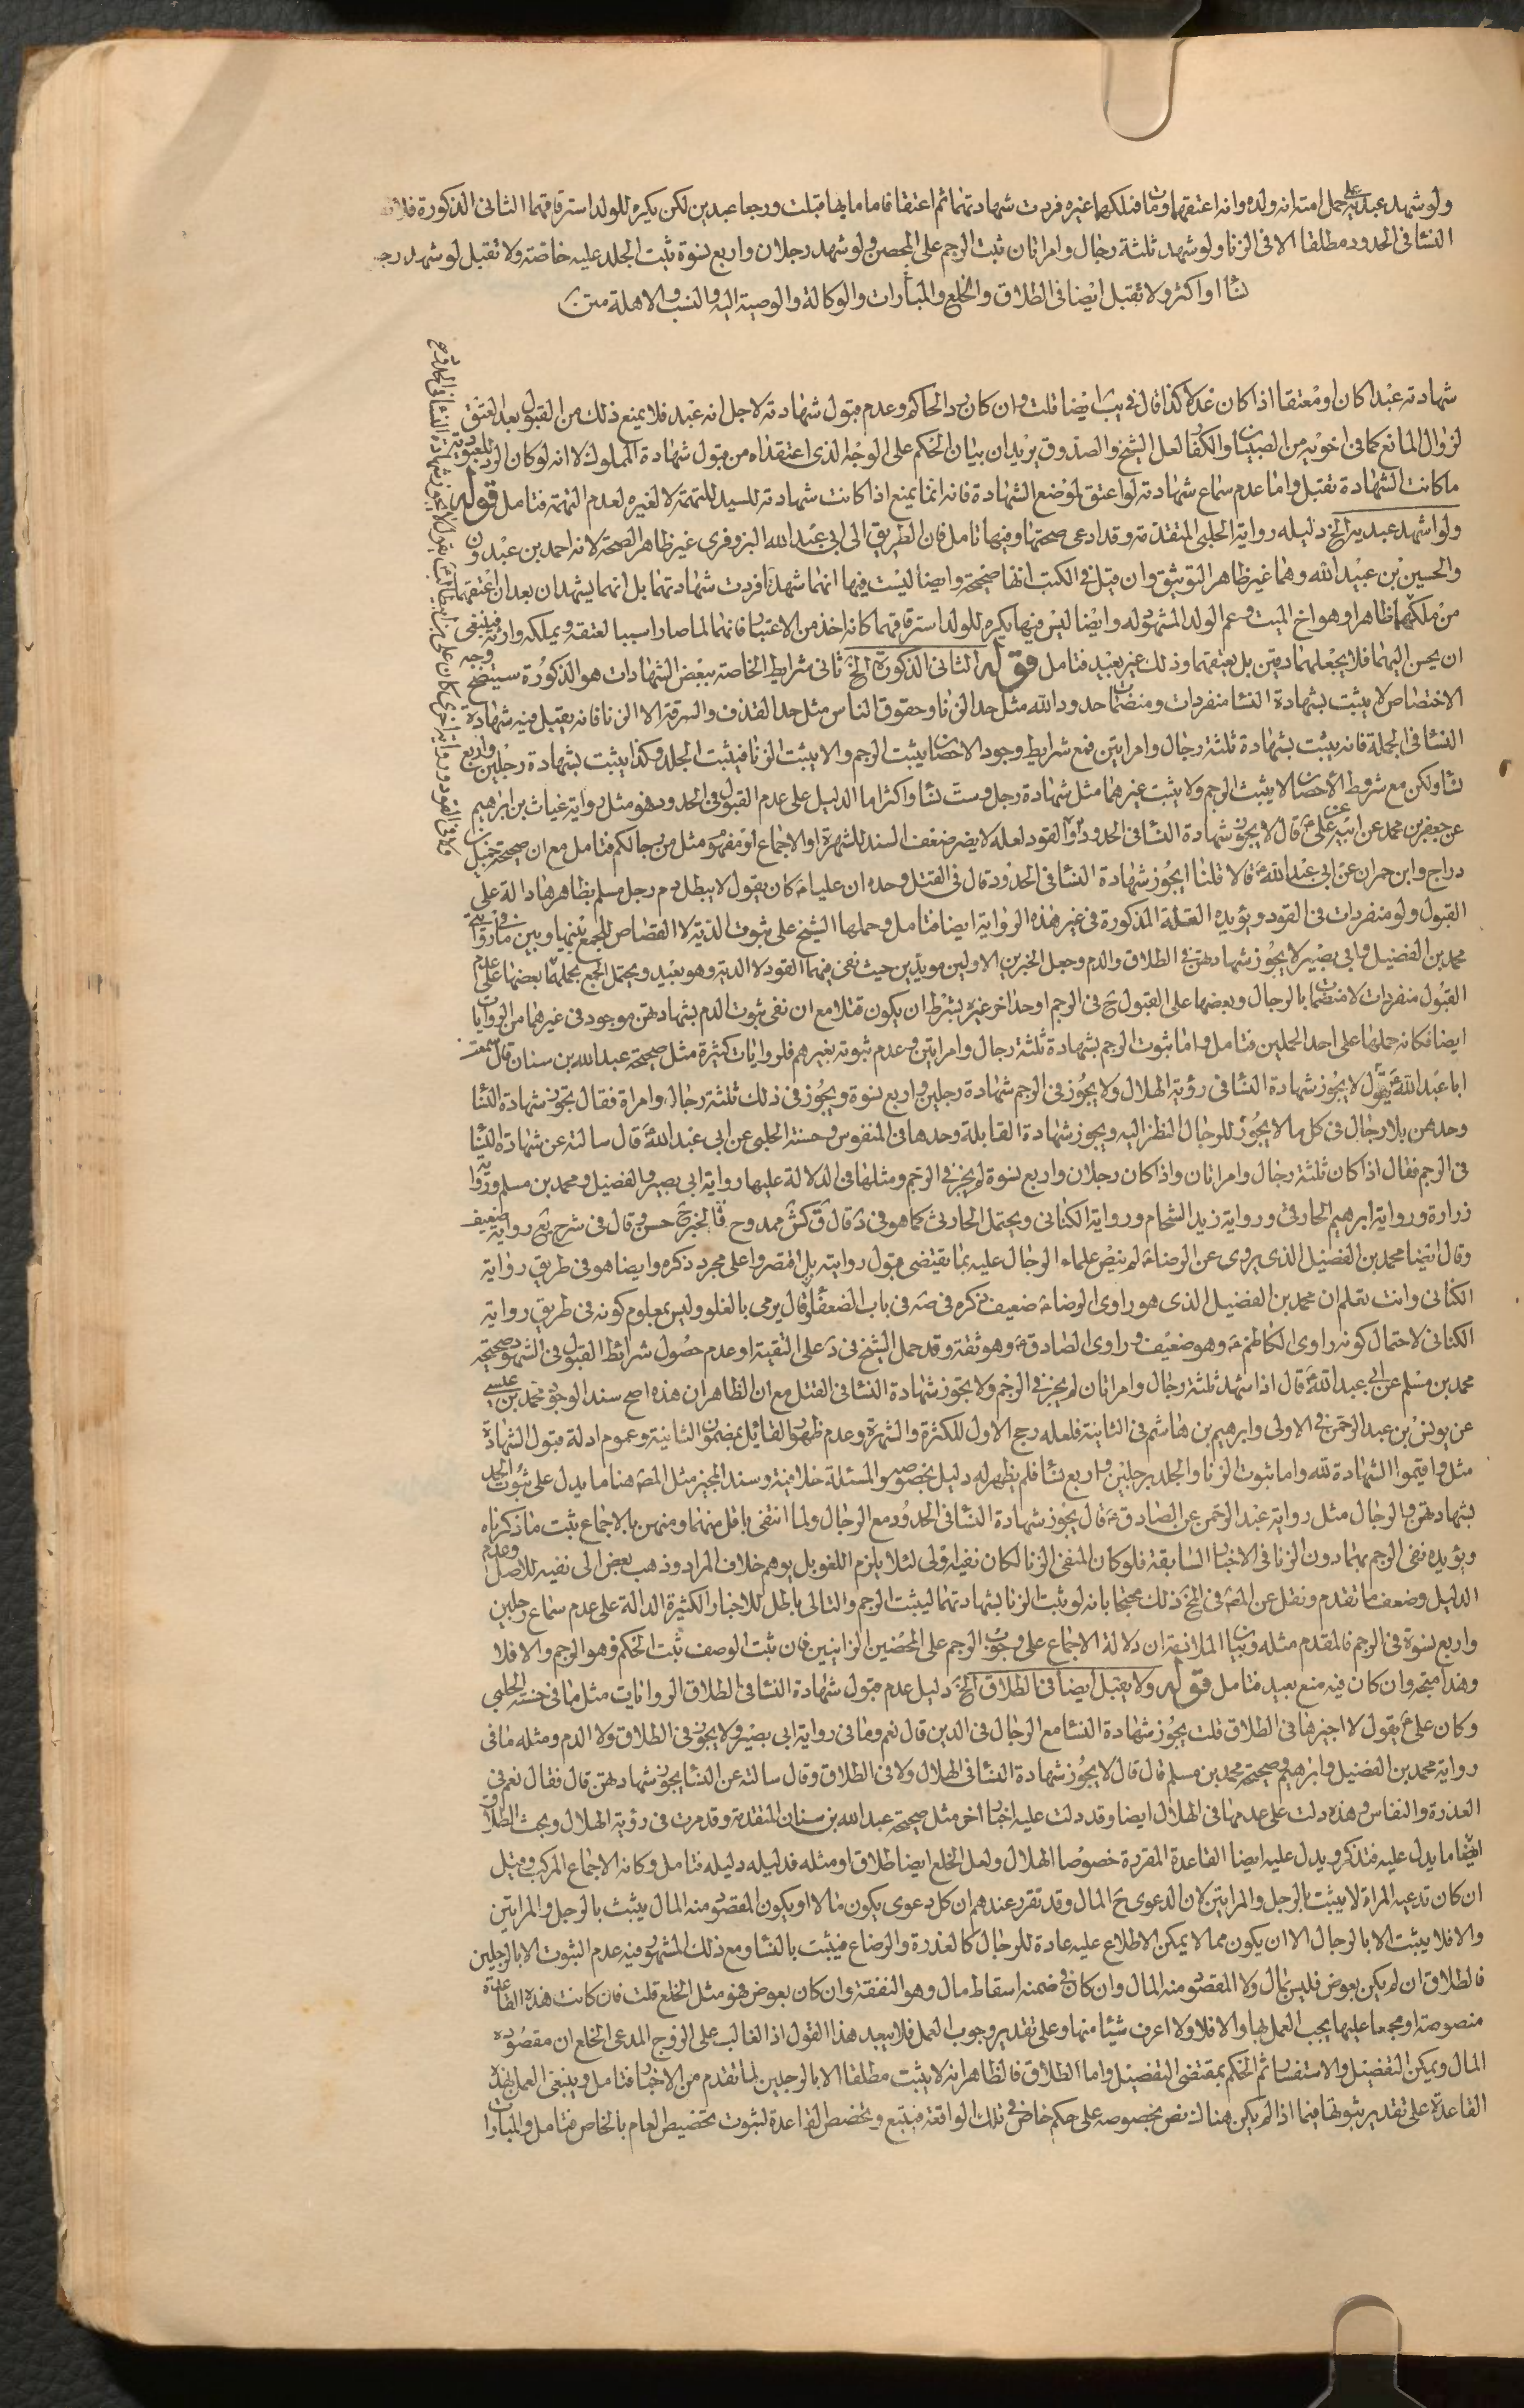 ولو شهد عبديه على حمل امته انه ولده وانه اعتقهما ومات فملكهما غيره فردت شهادتهما ثم اعتقا فاقاما بها قبلت ورجعا عبدين لكن يكره للولد استرقاقهما الثانى الذكورة فلا تقبل
النسا فى الحدود مطلقا الا فى الزنا ولو شهد ثلثة رجال وامراتان ثبت الرجم على المحصن ولو شهد رجلان واربع نسوة ثبت الجلد عليه خاصّة ولا تقبل لو شهد رجل
نسا او اكثر ولا تقبل ايضا فى الطلاق والخلع والمبارات والوكالة والوصية اليه والنسب والاهلة متن
شهادته عبدا كان او معتقا اذا كان عدلا كذا قال فى يب ايضا قلت وان كان رد الحاكم وعدم قبول شهادته لاجل انه عبد فلا يمنع ذلك من القبول بعد العتق
لزوال المانع كما فى اخويه من الصبيان والكفار لعل الشيخ والصدوق يريدان بيان الحكم على الوجه الذى اعتقداه من قبول شهادة المملوك لا انه لو كان الرد للعبودية
ما كانت الشهادة تقبل واما عدم سماع شهادته لو اعتق لموضع الشهادة فانه انما يمنع اذا كانت شهادته للسيد للتهمة لا لغيره لعدم التهمة فتامل قوله
ولو اشهد عبديه الخ دليله رواية الحلبى المتقدمة وقد ادعى صحتها وفيها تامل فان الطريق الى ابى عبد الله البزوفرى غير ظاهر الصحة لانه احمد بن عبدون
والحسين بن عبيد الله وهما غير ظاهر التوثيق وان قيل فى الكتب انها صحيحة وايضا ليست فيها انهما شهدا فردت شهادتهما بل انهما يشهدان بعد ان اعتقهما
من ملكهما ظاهرا وهو اخ الميت وعم الولد المشهود له وايضا ليس فيها يكره للولد استرقاقهما كانه اخذ من الاعتبار فانهما لما صارا سببا لعتقه ويملكه وارثه فينبغى
ان يحسن اليهما فلا يجعلهما رقين بل يعتقهما وذلك غير بعيد فتامل قوله الثانى الذكورة الخ ثانى شرايط الخاصة ببعض الشهادات هو الذكورة سيتضح وجه
الاختصاص لا يثبت بشهادة النسا منفردات ومنضمات حدود الله مثل حد الزنا وحقوق الناس مثل حد القذف والسرقة الا الزنا فانه يقبل فيه شهادة
النسا فى الجملة فانه يثبت بشهادة ثلثة رجال وامرايتن فمع شرايط وجود الاحصان يثبت الرجم والا يثبت الزنا فيثبت الجلد وكذا يثبت بشهادة رجلين واربع
نسا ولكن مع شروط الاحصان لا يثبت الرجم ولا يثبت غيرهما مثل شهادة رجل وست نسا واكثر اما الدليل على عدم القبول فى الحدود فهو مثل رواية غياث بن ابراهيم
عن جعفر بن محمد عن ابيه عن على ع قال لا يجوز شهادة النسا فى الحدود ولا القود لعله لا يضر ضعف السند للشهرة او الاجماع او مفهوم مثل من رجالكم فتامل مع ان صحيحة جميل بن
دراج وابن حمران عن ابى عبد الله ع قالا قلنا ايجوز شهادة النسا فى الحدود قال فى القتل وحده ان عليا ع كان يقول لا يبطل دم رجل مسلم بظاهرها دالة على
القبول ولو منفردات فى القود ويؤيده العلة المذكورة فى غير هذه الرواية ايضا فتامل وحملها الشيخ على ثبوت الدية لا القصاص للجمع بينها وبين ما فى رواية
محمد بن الفضيل وابى بصير لا يجوز شهادتهن فى الطلاق والدم وجعل الخبرين الاولين مويدين حيث نفى فيهما القود لا الدية وهو بعيد ويحتمل الجمع بحملها بعضها على عدم
القبول منفردات لا منضمات بالرجال وبعضها على القبول ح فى الرجم او حد اخر غيره بشرط ان يكون قتلا مع ان نفى ثبوت الدم بشهادتهن موجود فى غيرهما من الروايات
ايضا فكانه حملها على احد الحملين فتامل واما ثبوت الرجم بشهادة ثلثة رجال وامرايتن وعدم ثبوته بغيرهم فلروايات كثيرة مثل صحيحة عبد الله بن سنان قال سمعت
ابا عبد الله ع يقول لا يجوز شهادة النسا فى رؤية الهلال ولا يجوز فى الرجم شهادة رجلين واربع نسوة ويجوز فى ذلك ثلثة رجال وامراة فقال تجوز شهادة النسا
وحدهن بلا رجال فى كل ما لا يجوز للرجال النظر اليه ويجوز شهادة القابلة وحدها فى المنفوس وحسنة الحلبى عن ابى عبد الله ع قال سالته عن شهادة النسا
فى الرجم فقال اذا كان ثلثة رجال وامراتان واذا كان رجلان واربع نسوة لم يجز فى الرجم ومثلها فى الدلالة عليها رواية ابى بصير والفضيل ومحمد بن مسلم ورواية
زرارة ورواية ابرهيم الحارثى ورواية زيد الشحام ورواية الكنانى ويحتمل الحارث كما هو فى د قال ق كش ممدوح فالخبر ح حسن وقال فى شرح يع رواية ضعيف
وقال ايضا محمد بن الفضيل الذى يروى عن الرضا ع لم ينص علماء الرجال عليه بما يقتضى قبول روايته بل اقتصروا على مجرد ذكره وايضا هو فى طريق رواية
الكنانى وانت تعلم ان محمد بن الفضيل الذى هو راوى الرضا ع ضعيف ذكره فى صه فى باب الضعفا وقال يرمى بالغلو وليس بمعلوم كونه فى طريق رواية
الكنانى لاحتمال كونه راوى الكاظم ع وهو ضعيف وراوى الصادق ع وهو ثقة وقد حمل الشيخ فى د على التقية او عدم حصول شرائط القبول فى الشهود صحيحة
محمد بن مسلم عن ابى عبد الله ع قال اذا شهد ثلثة رجال وامراتان لم يجز فى الرجم ولا يجوز شهادة النسا فى القتل مع ان الظاهر ان هذه اصح سندا لوجود محمد بن عيسى
عن يونس بن عبد الرحمن فى الاولى وابرهيم بن هاشم فى الثانية فلعله رجح الاول للكثرة والشهرة وعدم ظهور القائل بمضمون الثانية وعموم ادلة قبول الشهادة
مثل واقيموا الشهادة لله واما ثبوت الزنا والجلد برجلين واربع نسا فلم يظهر له دليل بخصوصه والمسئلة خلافية وسند المجيز مثل المصه هنا ما يدل على ثبوت الحد
بشهادتهن والرجال مثل رواية عبد الرحمن عن الصادق ع قال يجوز شهادة النسا فى الحدود مع الرجال ولما انتفى باقل منهما ومنهن بالاجماع ثبت ما ذكرناه
ويؤيده نفى الرجم بهما دون الزنا فى الاخبار السابقة فلو كان المنفى الزنا لكان نفيه اولى لئلا يلزم اللغو بل يوهم خلاف المراد وذهب بعض الى نفيه للاصل وعدم
الدليل وضعف ما تقدم ونقل عن المصه فى لخ ذلك محتجا بانه لو ثبت الزنا بشهادتهما ليثبت الرجم والتالى باطل للاخبار الكثيرة الدالة على عدم سماع رجلين
واربع نسوة فى الرجم فالمقدم مثله وبيان الملازمة ان دلالة الاجماع على وجوب الرجم على المحصنين الزانيين فان ثبت الوصف ثبت الحكم وهو الرجم والا فلا
وهذا متجه وان كان فيه منع بعيد فتامل قوله ولا يقبل ايضا فى الطلاق الخ دليل عدم قبول شهادة النسا فى الطلاق الروايات مثل ما فى حسنة الحلبى
وكان على ع يقول لا اجيزها فى الطلاق قلت يجوز شهادة النسا مع الرجال فى الدين قال نعم وما فى رواية ابى بصير ولا يجوز فى الطلاق ولا الدم ومثله ما فى
رواية محمد بن الفضيل وابرهيم وصحيحة محمد بن مسلم قال قال لا يجوز شهادة النسا فى الهلال ولا فى الطلاق وقال سالته عن النسا يجوز شهادتهن قال فقال نعم فى
العذرة والنفاس وهذه دلت على عدمها فى الهلال ايضا وقد دلت عليه اخبار اخر مثل صحيحة عبد الله بن سنان المتقدمة وقد مرت فى رؤية الهلال وبحث الطلاق
ايضا ما يدل عليه فتذكر ويدل عليه ايضا القاعدة المقررة خصوصا الهلال ولعل الخلع ايضا طلاق او مثله فدليله دليله فتامل وكانه الاجماع المركب وقيل
ان كان تدعيه المراة لا يثبت بالرجل والمرايتن لان الدعوى ح المال وقد تقرر عندهم ان كل دعوى يكون مالا او يكون المقصود منه المال يثبت بالرجل والمرايتن
والا فلا يثبت الا بالرجال الا ان يكون مما لا يمكن الاطلاع عليه عادة للرجال كالعذرة والرضاع فيثبت بالنسا ومع ذلك المشهور فيه عدم الثبوت الا بالرجلين
فالطلاق ان لم يكن بعوض فليس بمال ولا المقصود منه المال وان كان فى ضمنه اسقاط مال وهو النفقة وان كان بعوض فهو مثل الخلع قلت فان كانت هذه القاعدة
منصوصة او مجمعا عليها يجب العمل بها والا فلا ولا اعرف شيئا منها وعلى تقدير وجوب العمل فلا يبعد هذا القول اذ الغالب على الزوج المدعى الخلع ان مقصوده
المال ويمكن التفصيل والاستفسار ثم الحكم بمقتضى التفصيل واما الطلاق فالظاهر انه لا يثبت مطلقا الا بالرجلين لما تقدم من الاخبار فتامل وينبغى العمل بهذه
القاعدة على تقدير ثبوتها فيما اذا لم يكن هناك نص بخصوصه على حكم خاص فى تلك الواقعة فيتبع وتخصص القاعدة لثبوت تخصيص العام بالخاص فتامل والمبارات